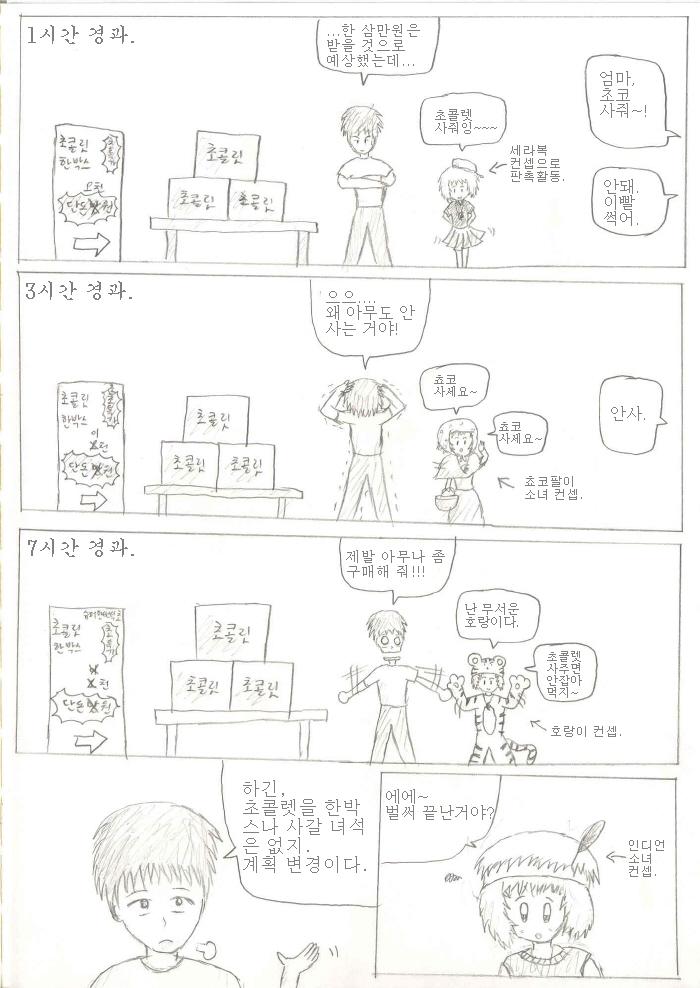 1시간 경과.
...한 삼만원은
받을 것으로
예상했는데...
초콜렛
사줘잉~~~
세라복
컨셉으로
판촉활동.
엄마,
초코
사줘~!
안돼.
이빨
썩어.
초콜릿
한박스
오천
단돈 만원
초콜릿
초콜릿
초콜릿
3시간 경과.
으으....
왜 아무도 안
사는 거야!
쵸코
사세요~
쵸코
사세요~
쵸코팔이
소녀 컨셉.
안사.
초콜릿
한박스
이
천
단돈 만원
초콜릿
초콜릿
초콜릿
7시간 경과.
제발 아무나 좀
구매해 줘!!!
난 무서운
호랑이다.
쵸콜렛
사주면
안잡아
먹지~
호랑이 컨셉.
초콜릿
한박스
천
단돈 만원
초콜릿
초콜릿
초콜릿
하긴,
초콜렛을 한박
스나 사갈 녀석
은 없지.
계획 변경이다.
에에~
벌써 끝난거야?
인디언
소녀
컨셉.